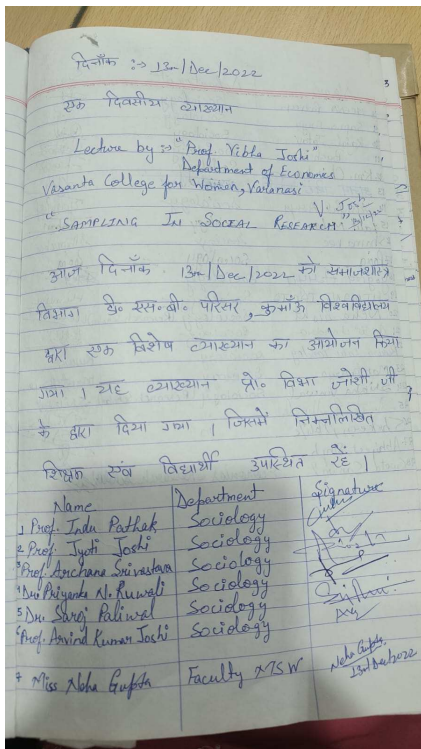 दिनाँक :→ 13th/Dec/2022
एक दिवसीय व्याख्यान
Lecture by :→ "Prof. Vibha Joshi"
Department of Economics
Vasanta College for Women, Varanasi
V. Joshi
"SAMPLING IN SOCIAL RESEARCH."
आज दिनाँक 13th/Dec/2022 को समाजशास्त्र
विभाग डी० एस० बी० परिसर, कुमाँऊ विश्वविद्यालय
द्वारा एक विशेष व्याख्यान का आयोजन किया
गया । यह व्याख्यान प्रो० विभा जोशी जी
के द्वारा दिया गया , जिसमें निम्नलिखित
शिक्षक एवं विद्यार्थी उपस्थित रहें ।
Name Department Signature
1 Prof. Indu Pathak Sociology
2 Prof. Jyoti Joshi Sociology
3 Prof. Archana Srivastava Sociology
4 Dr. Priyanka N. Ruwali Sociology
5 Dr. Saroj Paliwal Sociology
6 Prof. Arvind Kumar Joshi Sociology
7 Miss Neha Gupta Faculty MSW Neha Gupta
13th Dec 2022